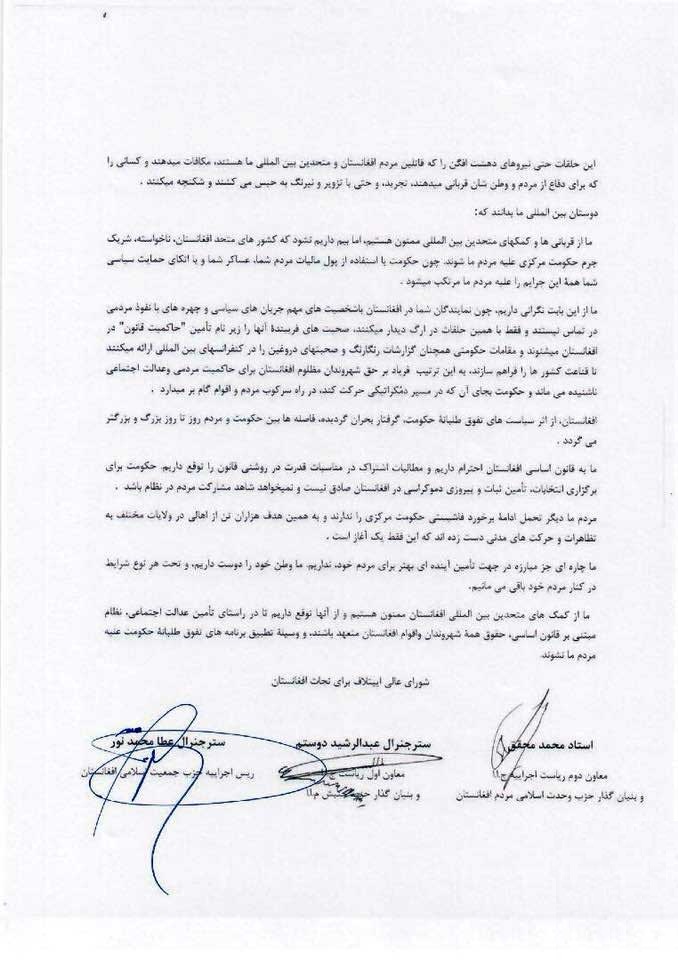 این حلقات حتی نیروهای دهشت افگن را که قاتلین مردم افغانستان و متحدین بین المللی ما هستند، مکافات میدهند و کسانی را
که برای دفاع از مردم و وطن شان قربانی میدهند، تجرید، و حتی با تزویر و نیرنگ به حبس می کشند و شکنجه میکنند .
دوستان بین المللی ما بدانند که:
ما از قربانی ها و کمکهای متحدین بین المللی ممنون هستیم، اما بیم داریم نشود که کشور های متحد افغانستان، ناخواسته، شریک
جرم حکومت مرکزی علیه مردم ما شوند. چون حکومت با استفاده از پول مالیات مردم شما، عساکر شما و با اتکای حمایت سیاسی
شما همۀ این جرایم را علیه مردم ما مرتکب میشود .
ما از این بابت نگرانی داریم، چون نمایندگان شما در افغانستان باشخصیت های مهم جریان های سیاسی و چهره های با نفوذ مردمی
در تماس نیستند و فقط با همین حلقات در ارگ دیدار میکنند، صحبت های فریبندۀ آنها را زیر نام تأمین "حاکمیت قانون" در
افغانستان میشنوند و مقامات حکومتی همچنان گزارشات رنگارنگ و صحبتهای دروغین را در کنفرانسهای بین المللی ارائه میکنند
تا قناعت کشور ها را فراهم سازند، به این ترتیب فریاد بر حق شهروندان مظلوم افغانستان برای حاکمیت مردمی وعدالت اجتماعی
ناشنیده می ماند و حکومت بجای آن که در مسیر دمُکراتیکی حرکت کند، در راه سرکوب مردم و اقوام گام بر میدارد .
افغانستان، از اثر سیاست های تفوق طلبانۀ حکومت، گرفتار بحران گردیده، فاصله ها بین حکومت و مردم روز تا روز بزرگ و بزرگتر
می گردد .
ما به قانون اساسی افغانستان احترام داریم و مطالبات اشتراک در مناسبات قدرت در روشنی قانون را توقع داریم. حکومت برای
برگزاری انتخابات، تأمین ثبات و پیروزی دموکراسی در افغانستان صادق نیست و نمیخواهد شاهد مشارکت مردم در نظام باشد .
مردم ما دیگر تحمل ادامۀ برخورد فاشیستی حکومت مرکزی را ندارند و به همین هدف هزاران تن از اهالی در ولایات مختلف به
تظاهرات و حرکت های مدنی دست زده اند که این فقط یک آغاز است .
ما چاره ای جز مبارزه در جهت تأمین آینده ای بهتر برای مردم خود، نداریم. ما وطن خود را دوست داریم، و تحت هر نوع شرایط
در کنار مردم خود باقی می مانیم.
ما از کمک های متحدین بین المللی افغانستان ممنون هستیم و از آنها توقع داریم تا در راستای تأمین عدالت اجتماعی، نظام
مبتنی بر قانون اساسی، حقوق همۀ شهروندان واقوام افغانستان متعهد باشند، و وسیلۀ تطبیق برنامه های تفوق طلبانۀ حکومت علیه
مردم ما نشوند.
شورای عالی ایتلاف برای نجات افغانستان
استاد محمد محقق
معاون دوم ریاست اجراییه ج.ا.ا
و بنیان گذار حزب وحدت اسلامی مردم افغانستان
سترجنرال عبدالرشید دوستم
معاون اول ریاست ج
و بنیان گذار جنبش م.ا.ا
سترجنرال عطا محمد نور
ریس اجراییه حزب جمعیت اسلامی افغانستان